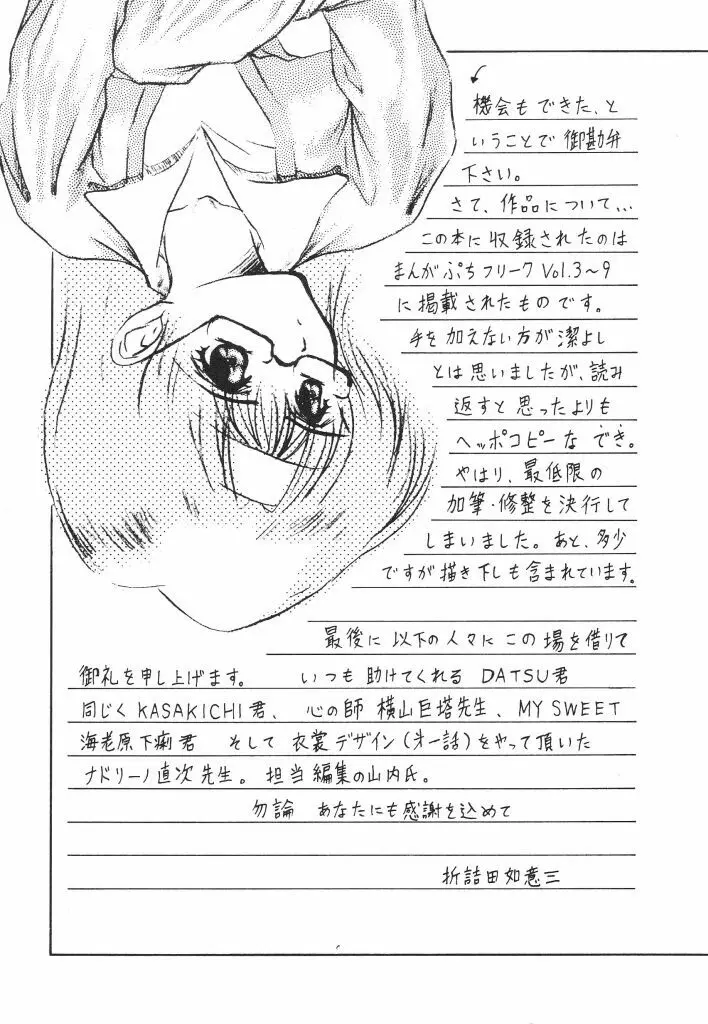 機会もできた、と
いうことで御勘弁
下さい。
さて、作品について...
この本に収録されたのは
まんがぷちフリーク Vol.3〜9
に掲載されたものです。
手を加えない方が潔よし
とは思いましたが、読み
返すと思ったよりも
ヘッポコピーなでき。
やはり、最低限の
加筆・修整を決行して
しまいました。あと、多少
ですが描き下しも含まれています。
最後に以下の人々にこの場を借りて
御礼を申し上げます。 いつも助けてくれる DATSU君
同じくKASAKICHI君、心の師 横山巨塔先生、MY SWEET
海老原下痢君 そして 衣裳デザイン(オ一話)をやって頂いた
ナドリーノ直次先生。担当編集の山内氏。
勿論 あなたにも感謝を込めて
折詰田如意三